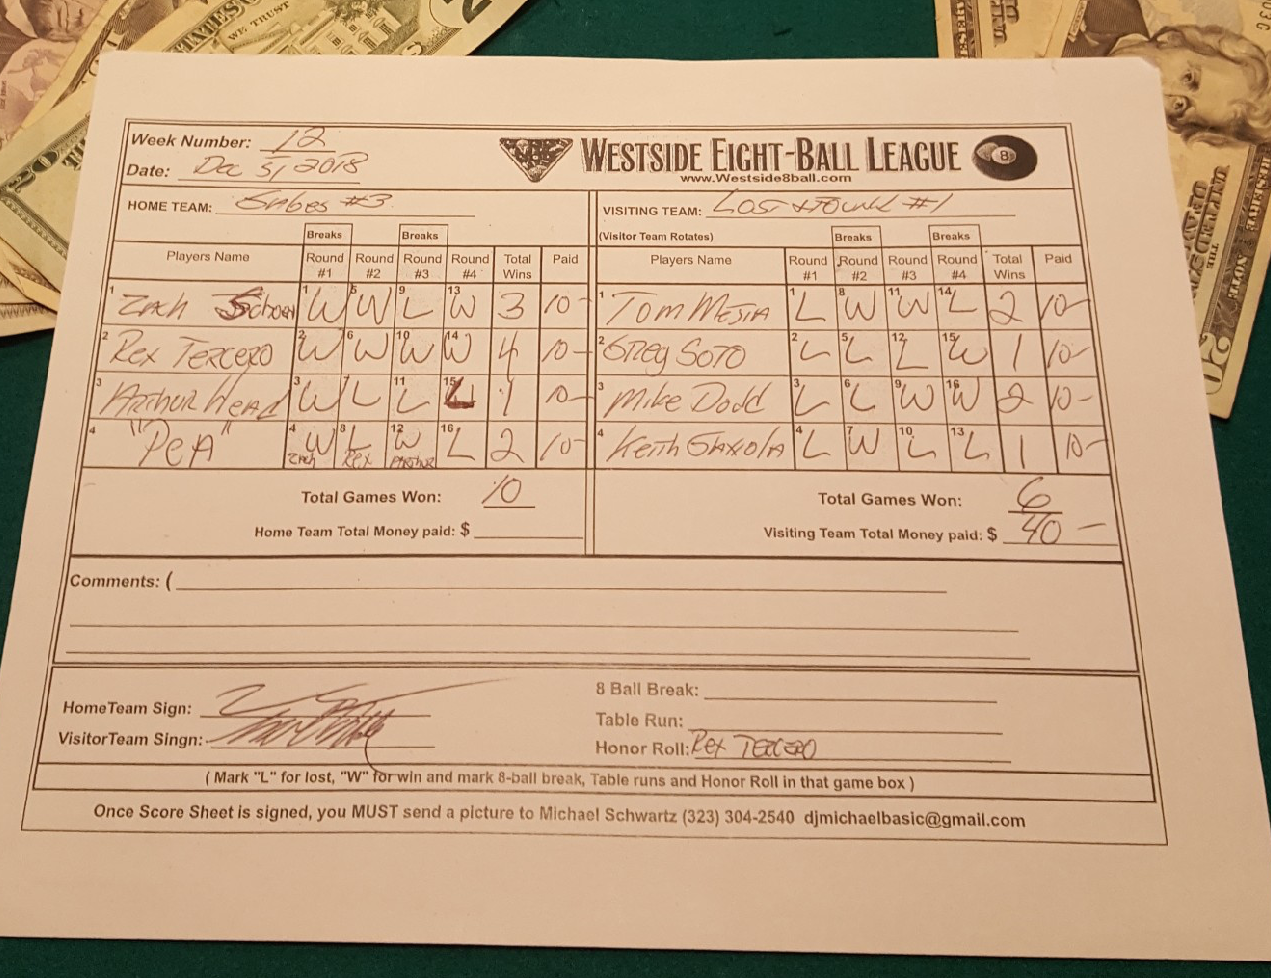 WE TRUST
20
Week Number: 12
Date: Dec 5, 2018
WESTSIDE EIGHT-BALL LEAGUE
8
www.Westside8ball.com
HOME TEAM: #3
VISITING TEAM: #1
(Visitor Team Rotates)
Breaks Breaks Breaks Breaks
Players Name Round #1 Round #2 Round #3 Round #4 Total Wins Paid Players Name Round #1 Round #2 Round #3 Round #4 Total Wins Paid
1 Zach Schoen 1 W 5 W 9 L 13 W 3 10- 1 Tom Mesia 1 L 8 W 11 W 14 L 2 10-
2 Rex Tercero 2 W 6 W 10 W 14 W 4 10- 2 Greg Soto 2 L 5 L 12 L 15 W 1 10-
3 Arthur Head 3 W 7 L 11 L 15 L 1 10- 3 Mike Dodd 3 L 6 L 9 W 16 W 2 10-
4 "PeA" 4 W Zach 8 L Rex 12 W Arthur 16 L 2 10- 4 Keith 4 L 7 W 10 L 13 L 1 10-
Total Games Won: 10
Total Games Won: 6
Home Team Total Money paid: $
Visiting Team Total Money paid: $ 40-
Comments: (
HomeTeam Sign:
VisitorTeam Singn:
8 Ball Break:
Table Run:
Honor Roll: Rex Tercero
( Mark "L" for lost, "W" for win and mark 8-ball break, Table runs and Honor Roll in that game box )
Once Score Sheet is signed, you MUST send a picture to Michael Schwartz (323) 304-2540 djmichaelbasic@gmail.com